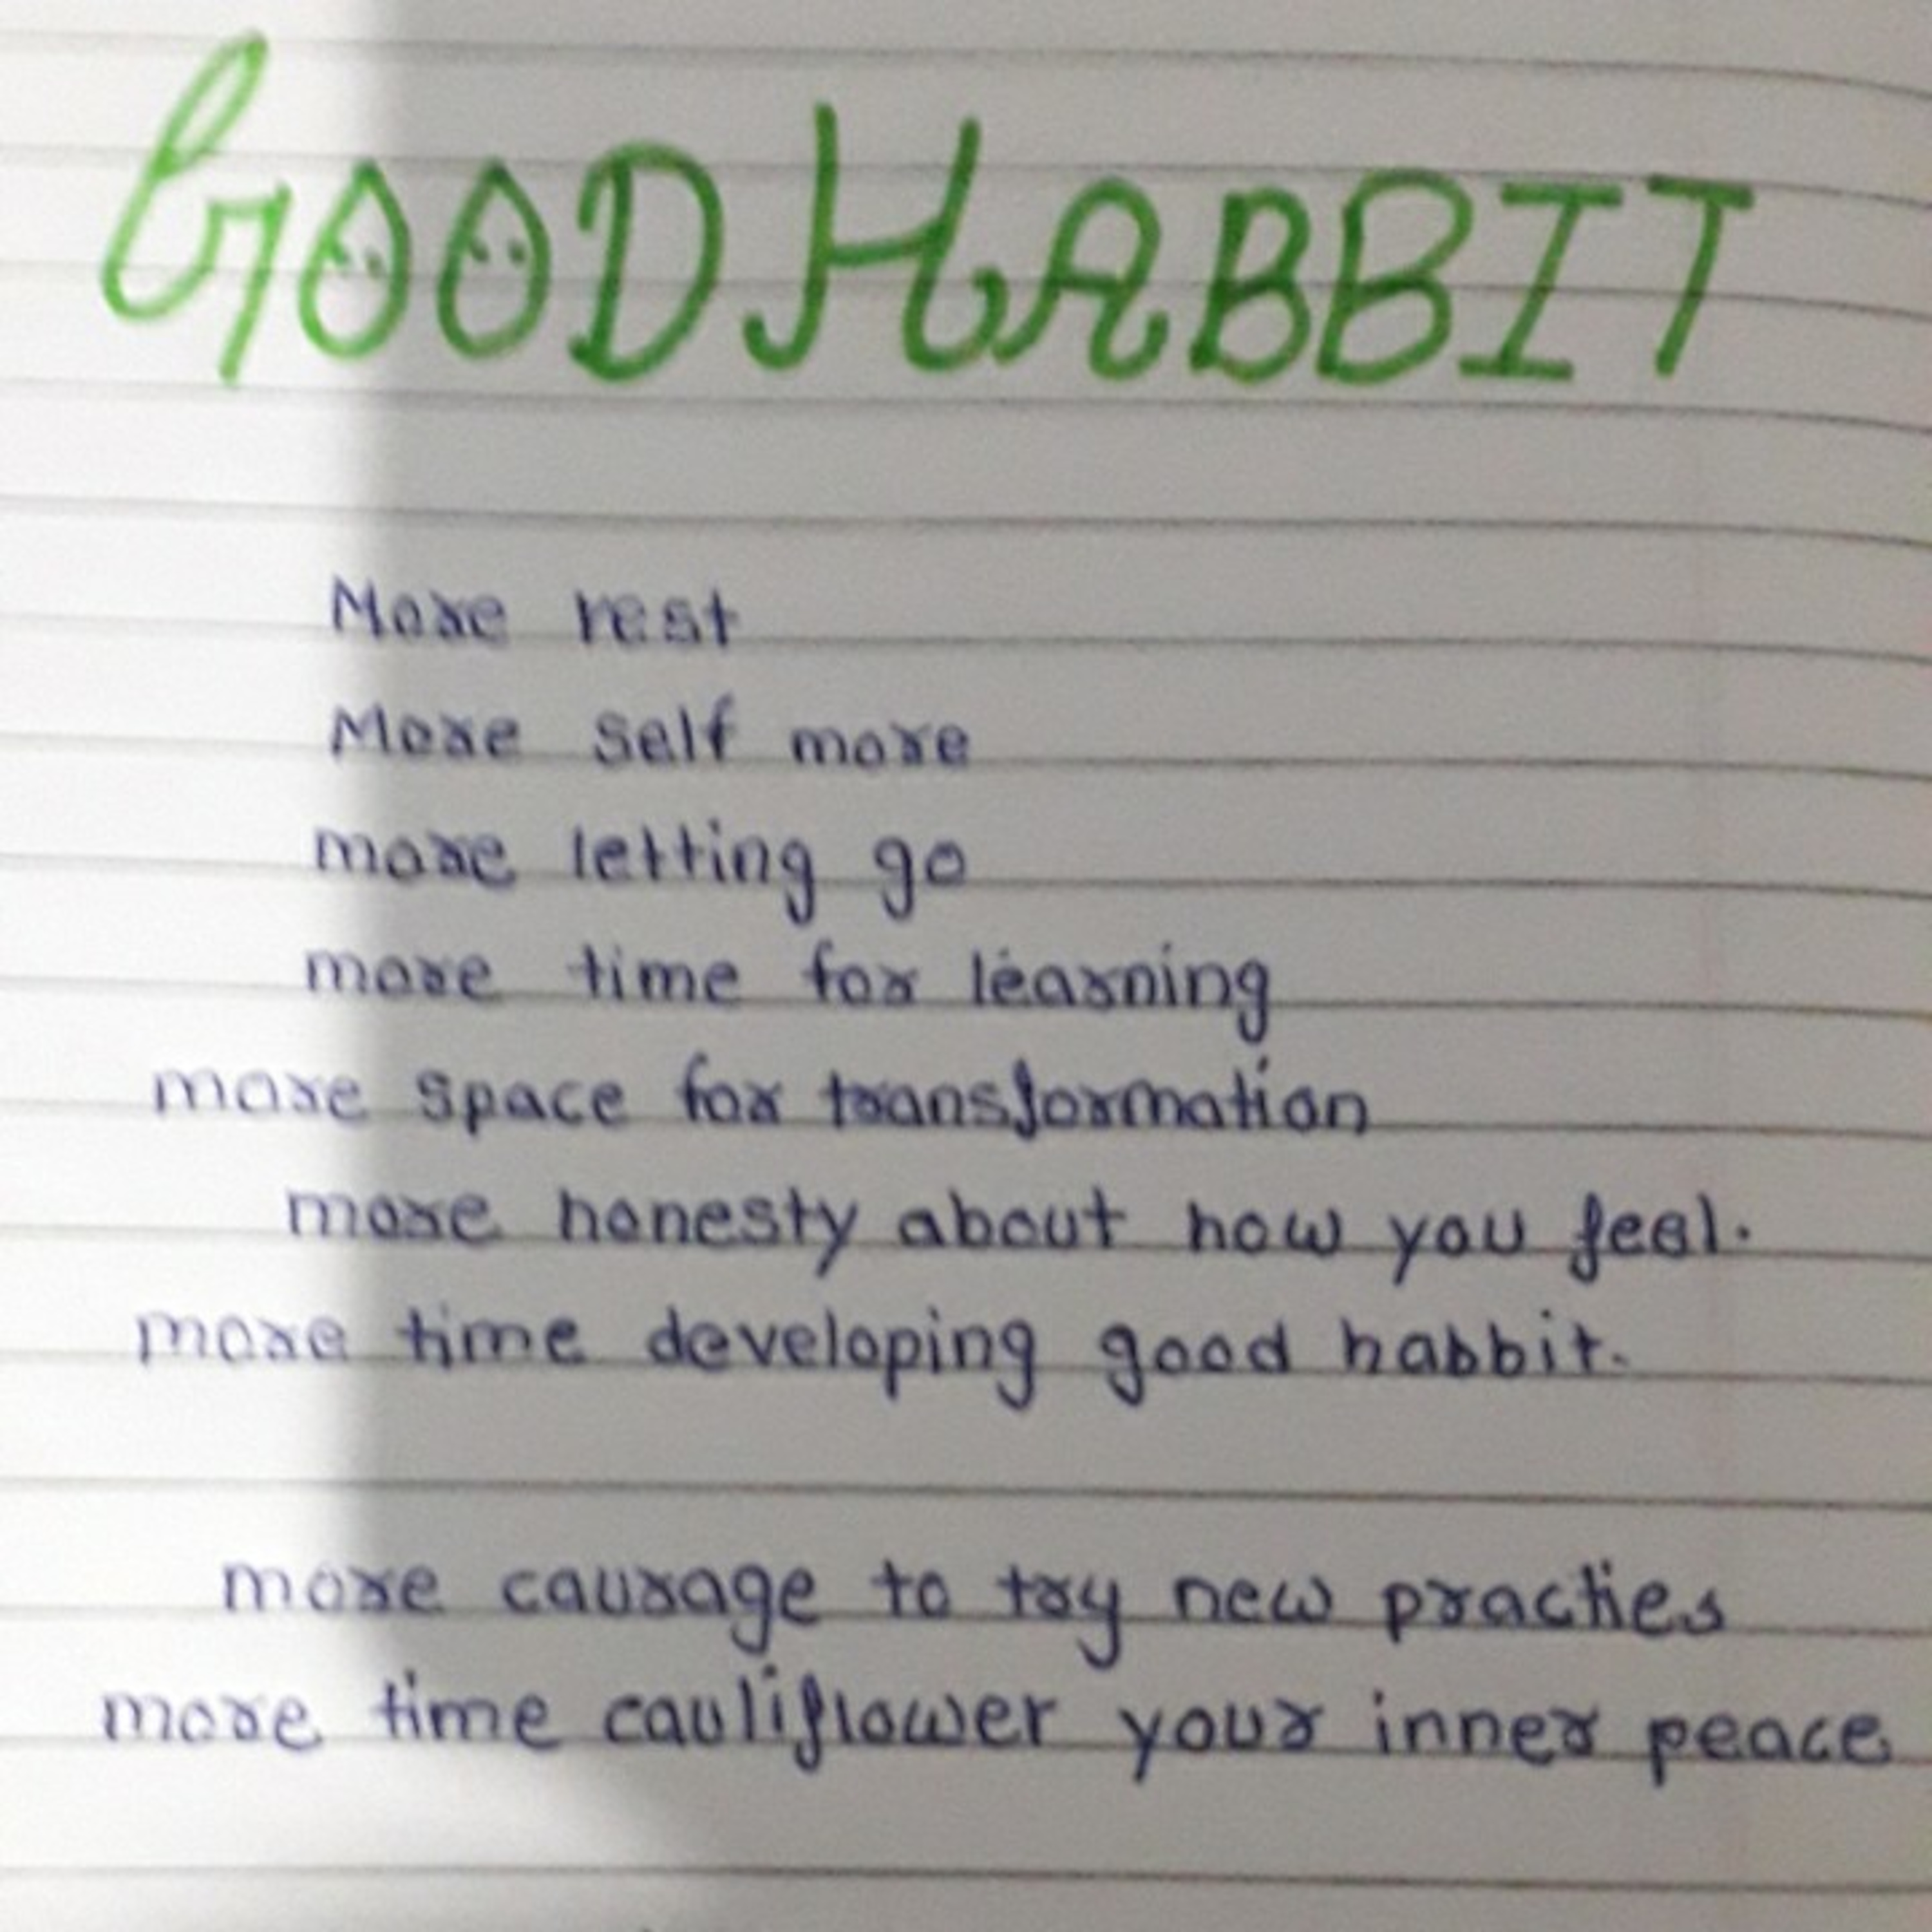 GOOD HABBIT
More rest
More self more
more letting go
more time for learning
more space for transformation
more honesty about how you feel.
more time developing good habbit.
more caurage to try new practies
more time cauliflower your inner peace